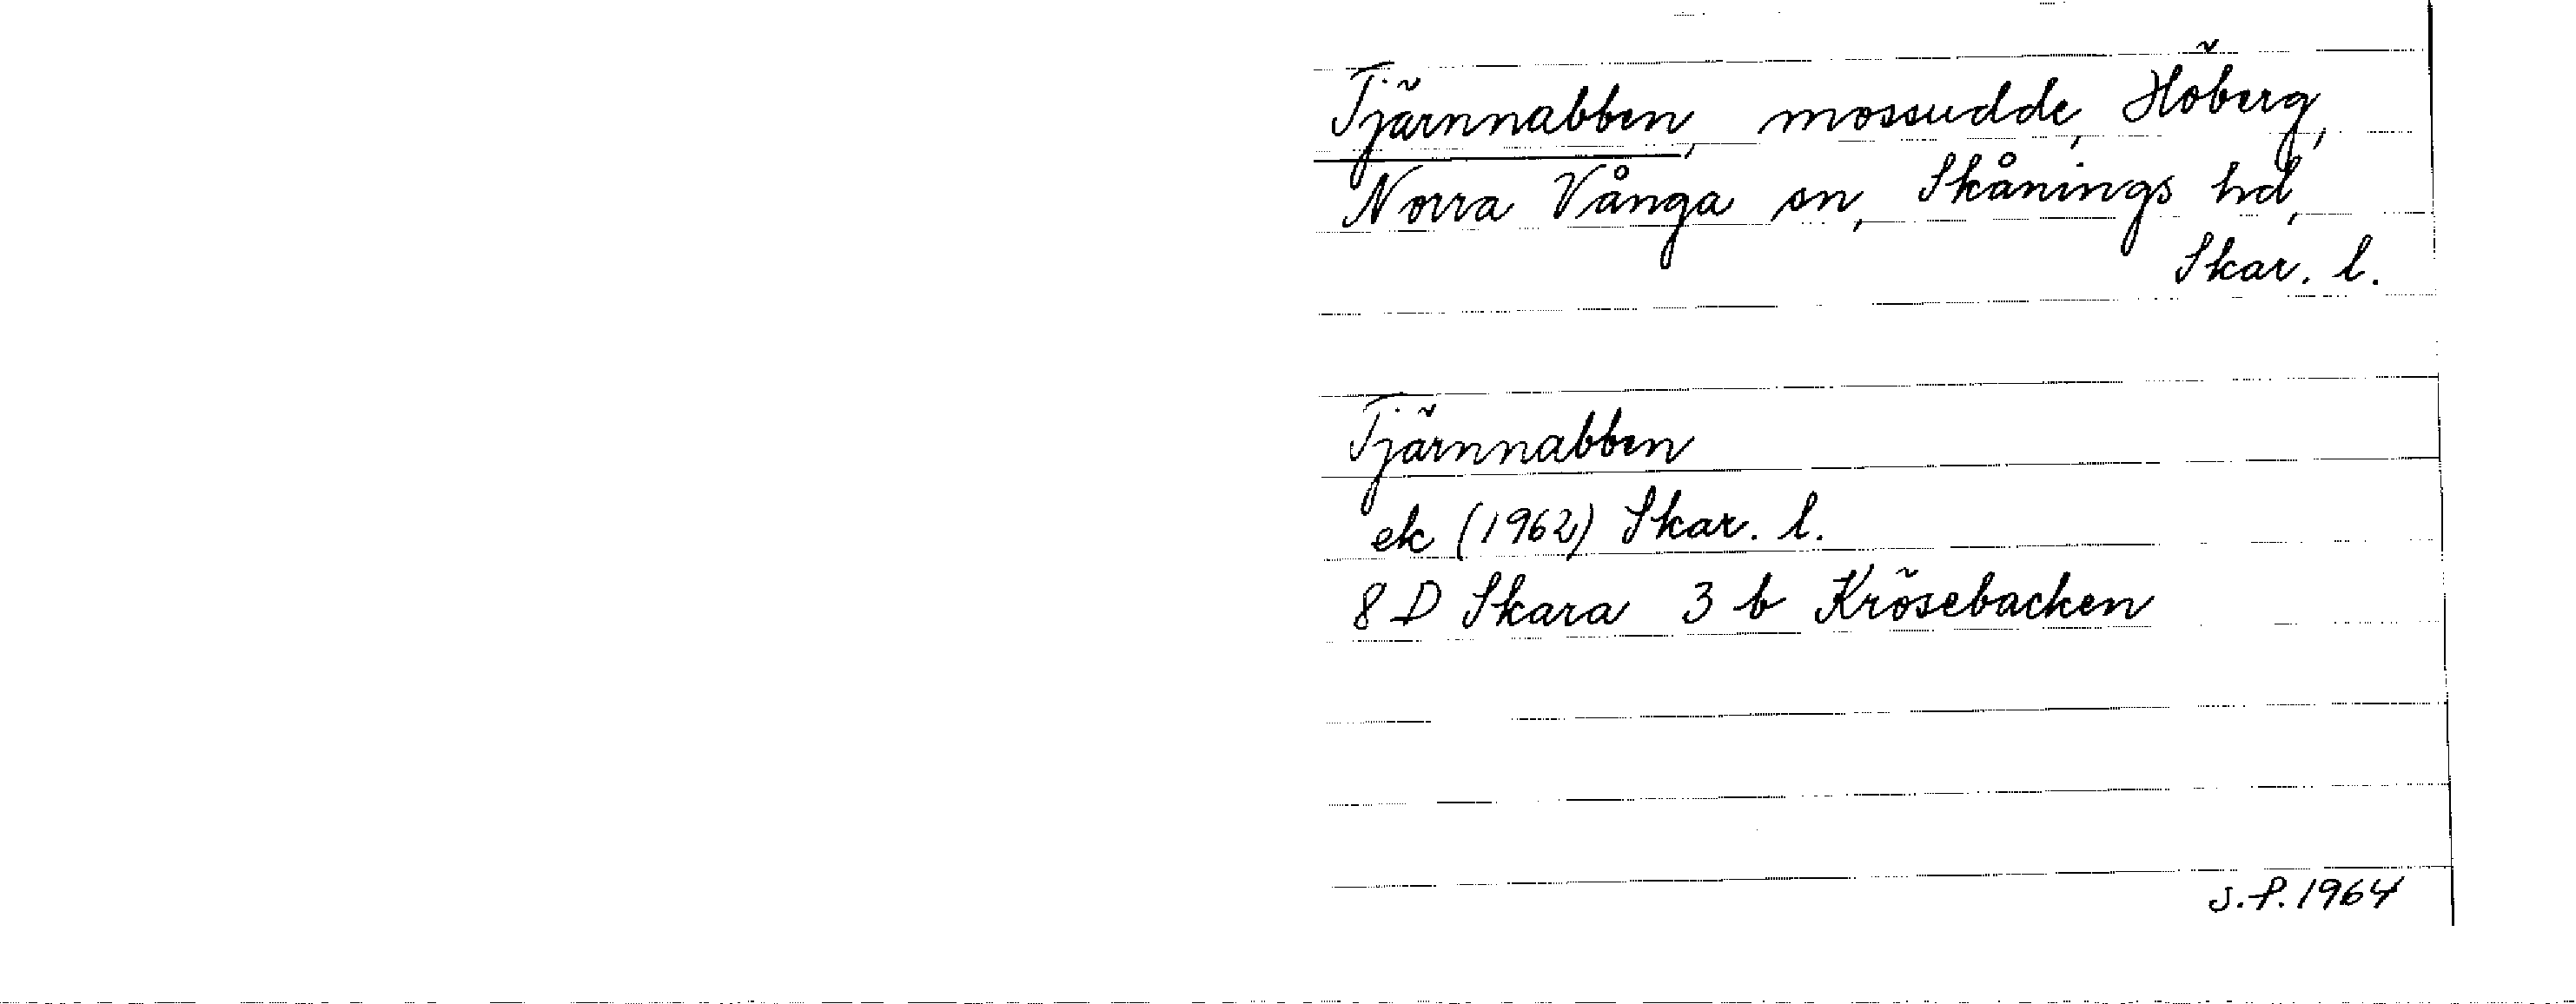 Tjärnnabben, mossudde, Höberg,
Norra Vånga sn, Skånings hd,
Skar. l.
Tjärnnabben
ek (1962) Skar. l.
8 D Skara 3 b Krösebacken
J.P. 1964